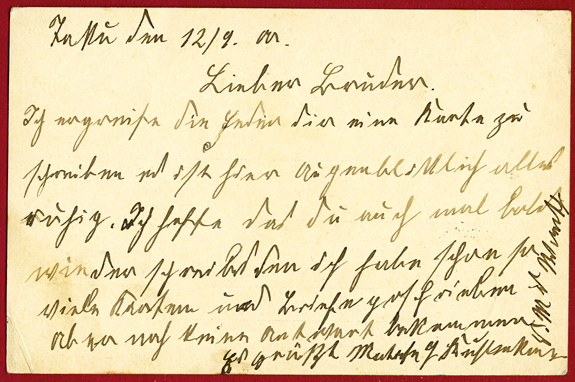 Taku den 12/9. 00.
Lieber Bruder.
Ich ergreife die Feder dir eine Karte zu
schreiben es ist hier augenblicklich alles
ruhig. Ich hoffe das du auch mal bald
wieder schreibst den ich habe schon so
viele Karten und Briefe geschrieben
aber noch keine antwort bekommen
Es grüßt Matrose
S.M.S